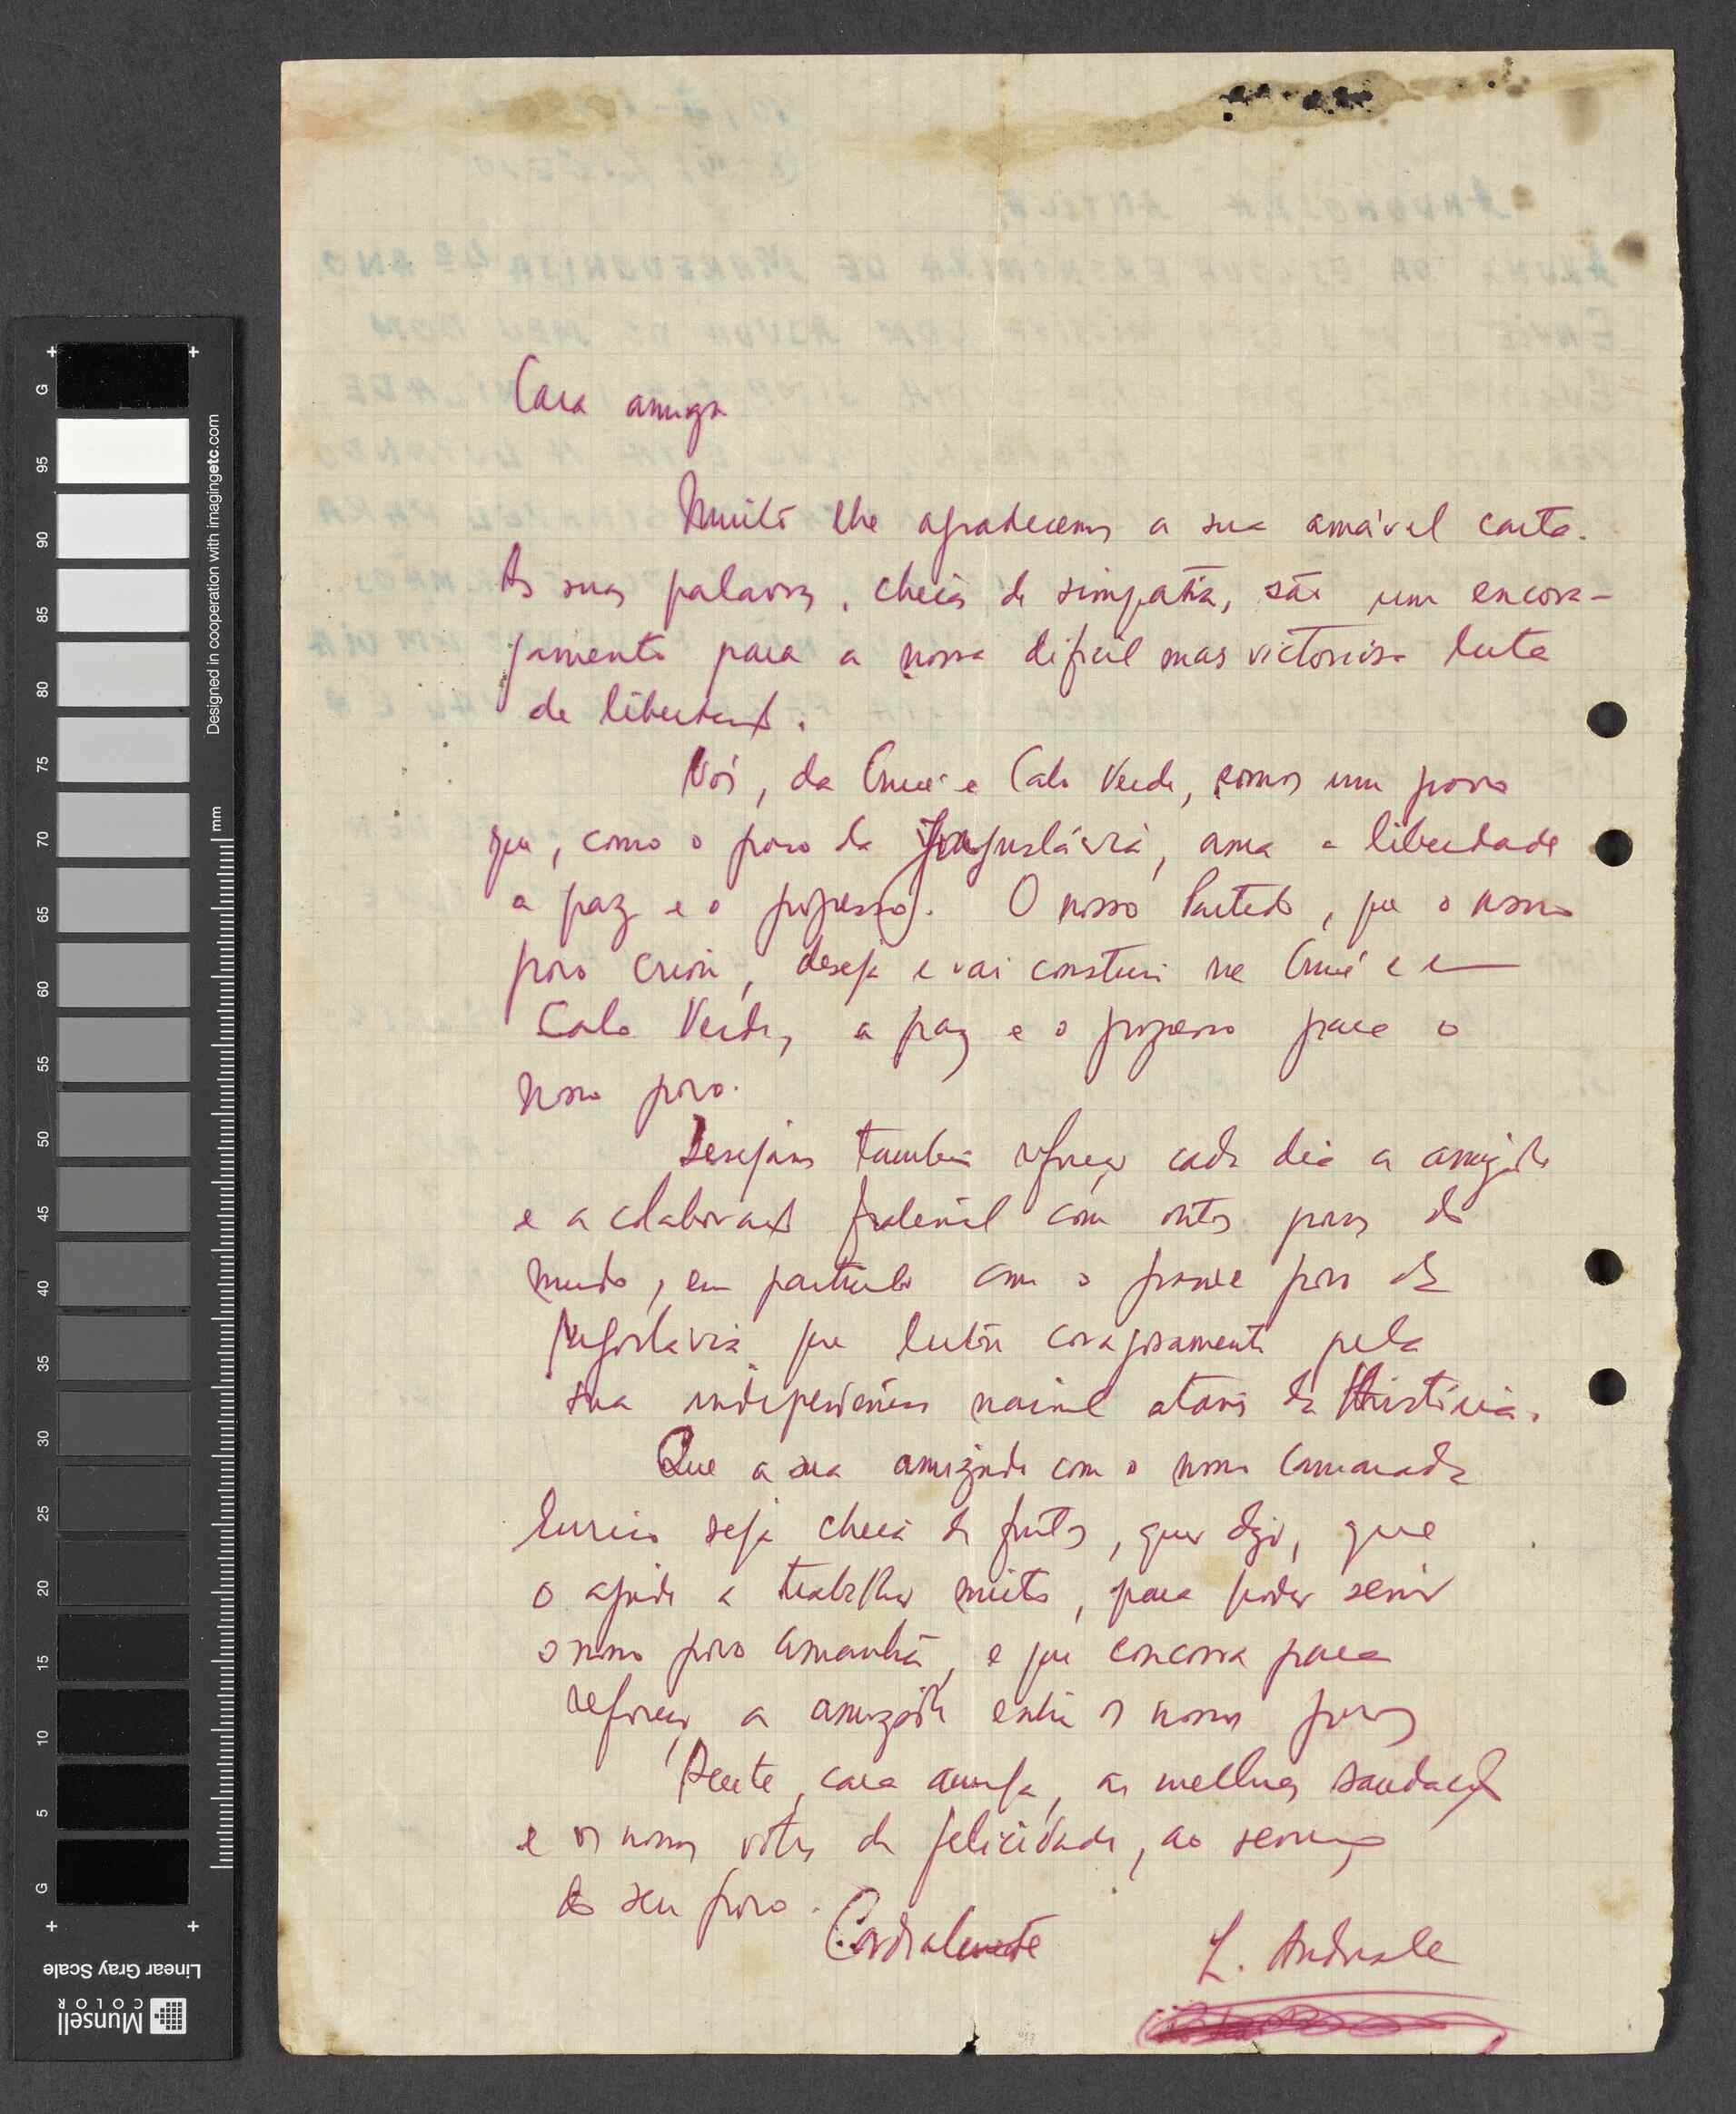 Cara amiga
Muito lhe agradecemos a sua amável carta.
As suas palavras, cheias de simpatia, são um encora-
jamento para a nossa difícil mas victoriosa luta
de libertação.
Nós, da Guiné e Cabo Verde, somos um povo
que, como o povo da Juguslávia, ama a liberdade
a paz e o progresso. O nosso Partido, que o nosso
povo criou, deseja e vai construir na Guiné e em
Cabo Verde, a paz e o progresso para o
nosso povo.
Desejamos também reforçar cada dia a amizade
e a colaboração fraternal com outros povos do
mundo, em particular com o grande povo da
Jugoslavia que lutou corajosamente pela
sua independência nacional através da História.
Que a sua amizade com o nosso camarada
seja cheia de frutos, quer dizer, que
o ajude a trabalhar muito, para poder servir
o nosso povo amanhã, e que concorra para
reforçar a amizade entre os nossos povos
Aceite, cara amiga, as melhores saudações
e os nossos votos de felicidade, ao serviço
do seu povo.
Cordialmente
L. Andrade
Designed in cooperation with imagingetc.com
mm
G 95 90 85 80 75 70 65 60 55 50 45 40 35 30 25 20 15 10 5 G
Linear Gray Scale
Munsell
COLOR